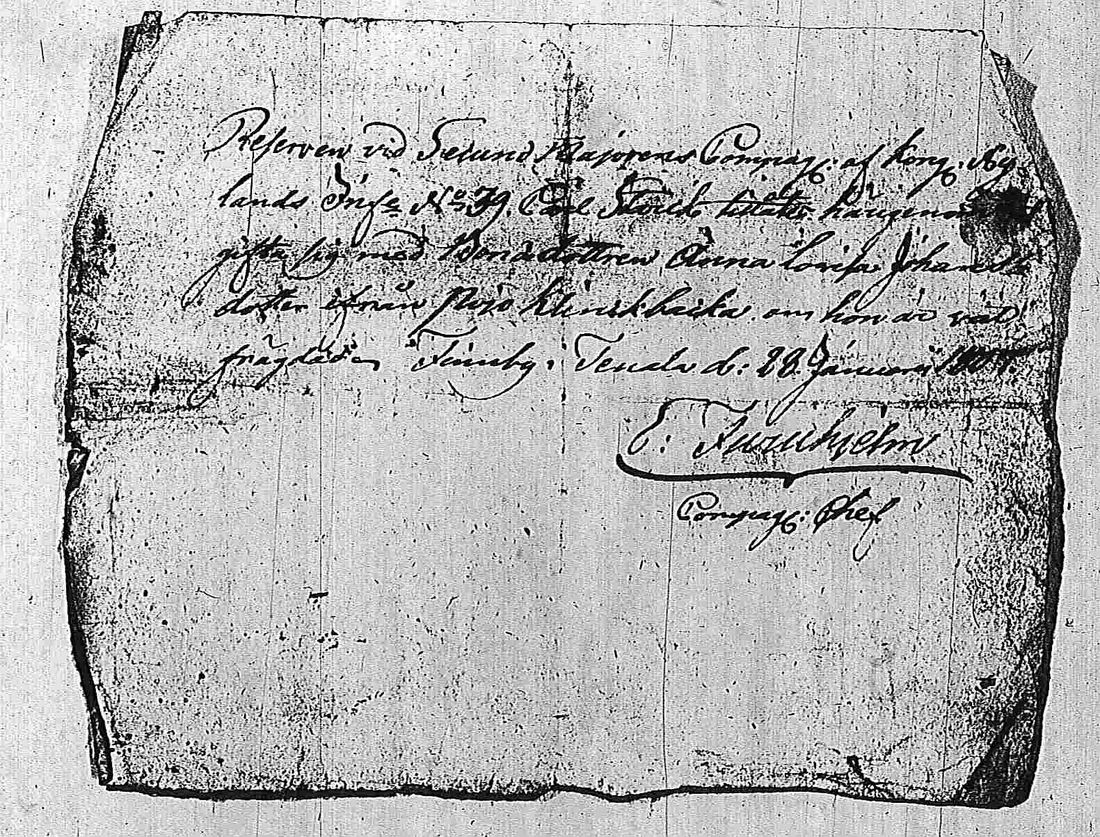 Reserven vid Second Majorens Compagn: af Kong: Ny
lands Infe No 39. Carl tillåtes härigenom
gifta sig med Bondedottren Anna Lovisa Johans
dotter ifrån Pojo Klinckbacka om hon är väl
frägdad. Finnby i Tenala d: 28 Januari
E: Furuhjelm
Compagn: Chef